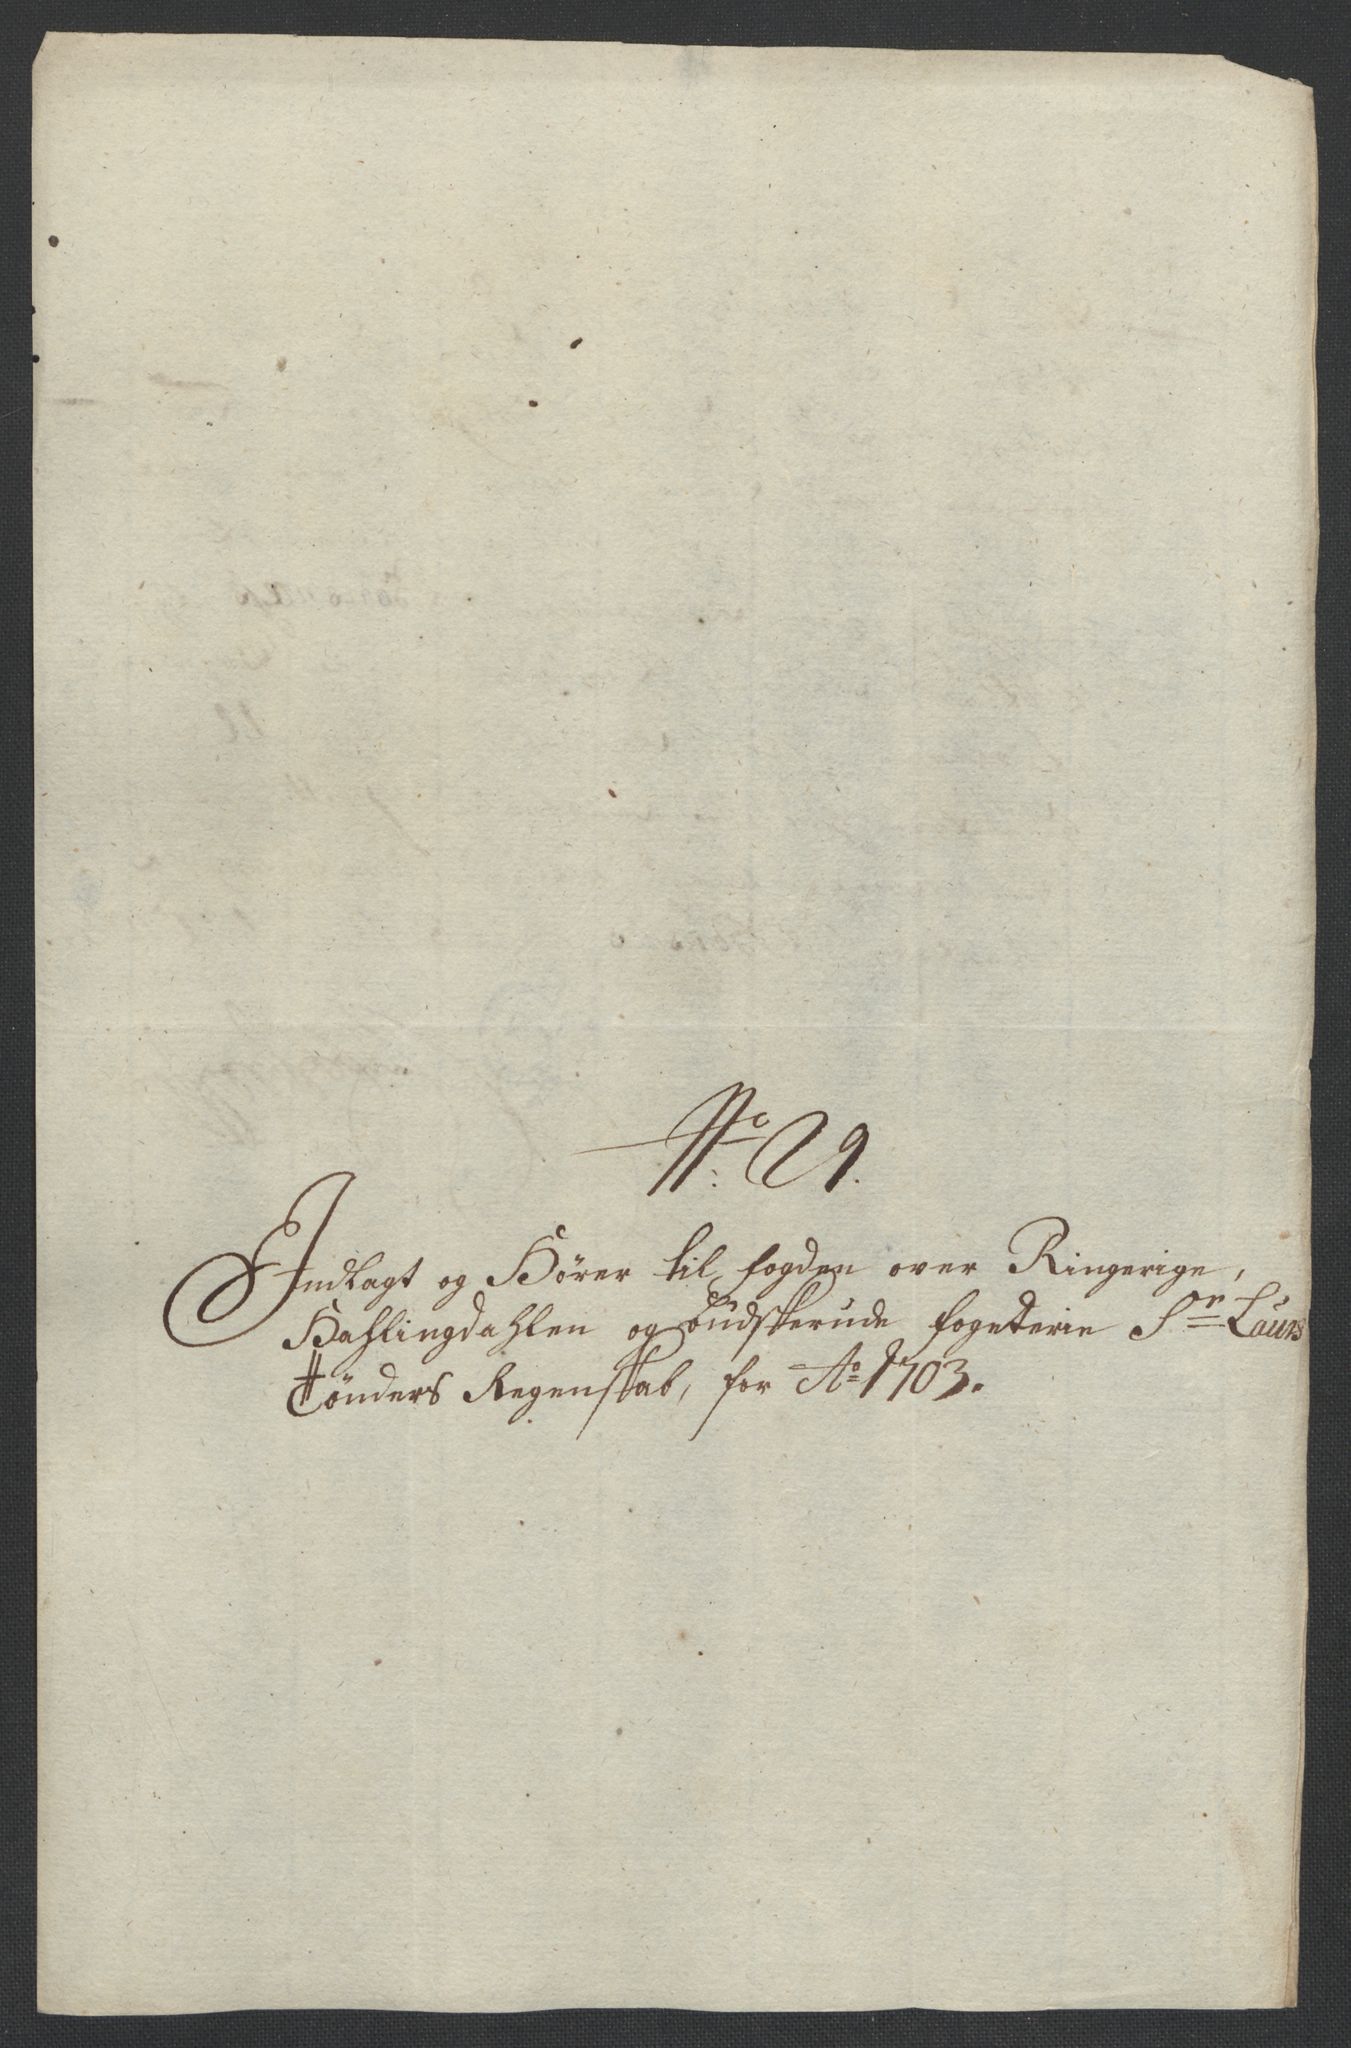 No: 29.
Indlagt og Hörer til fogden over Ringerige,
Hahlingdahlen og Budskerude fogeterie Sr Laurs
Tönders Regenskab, for Ao 1703.